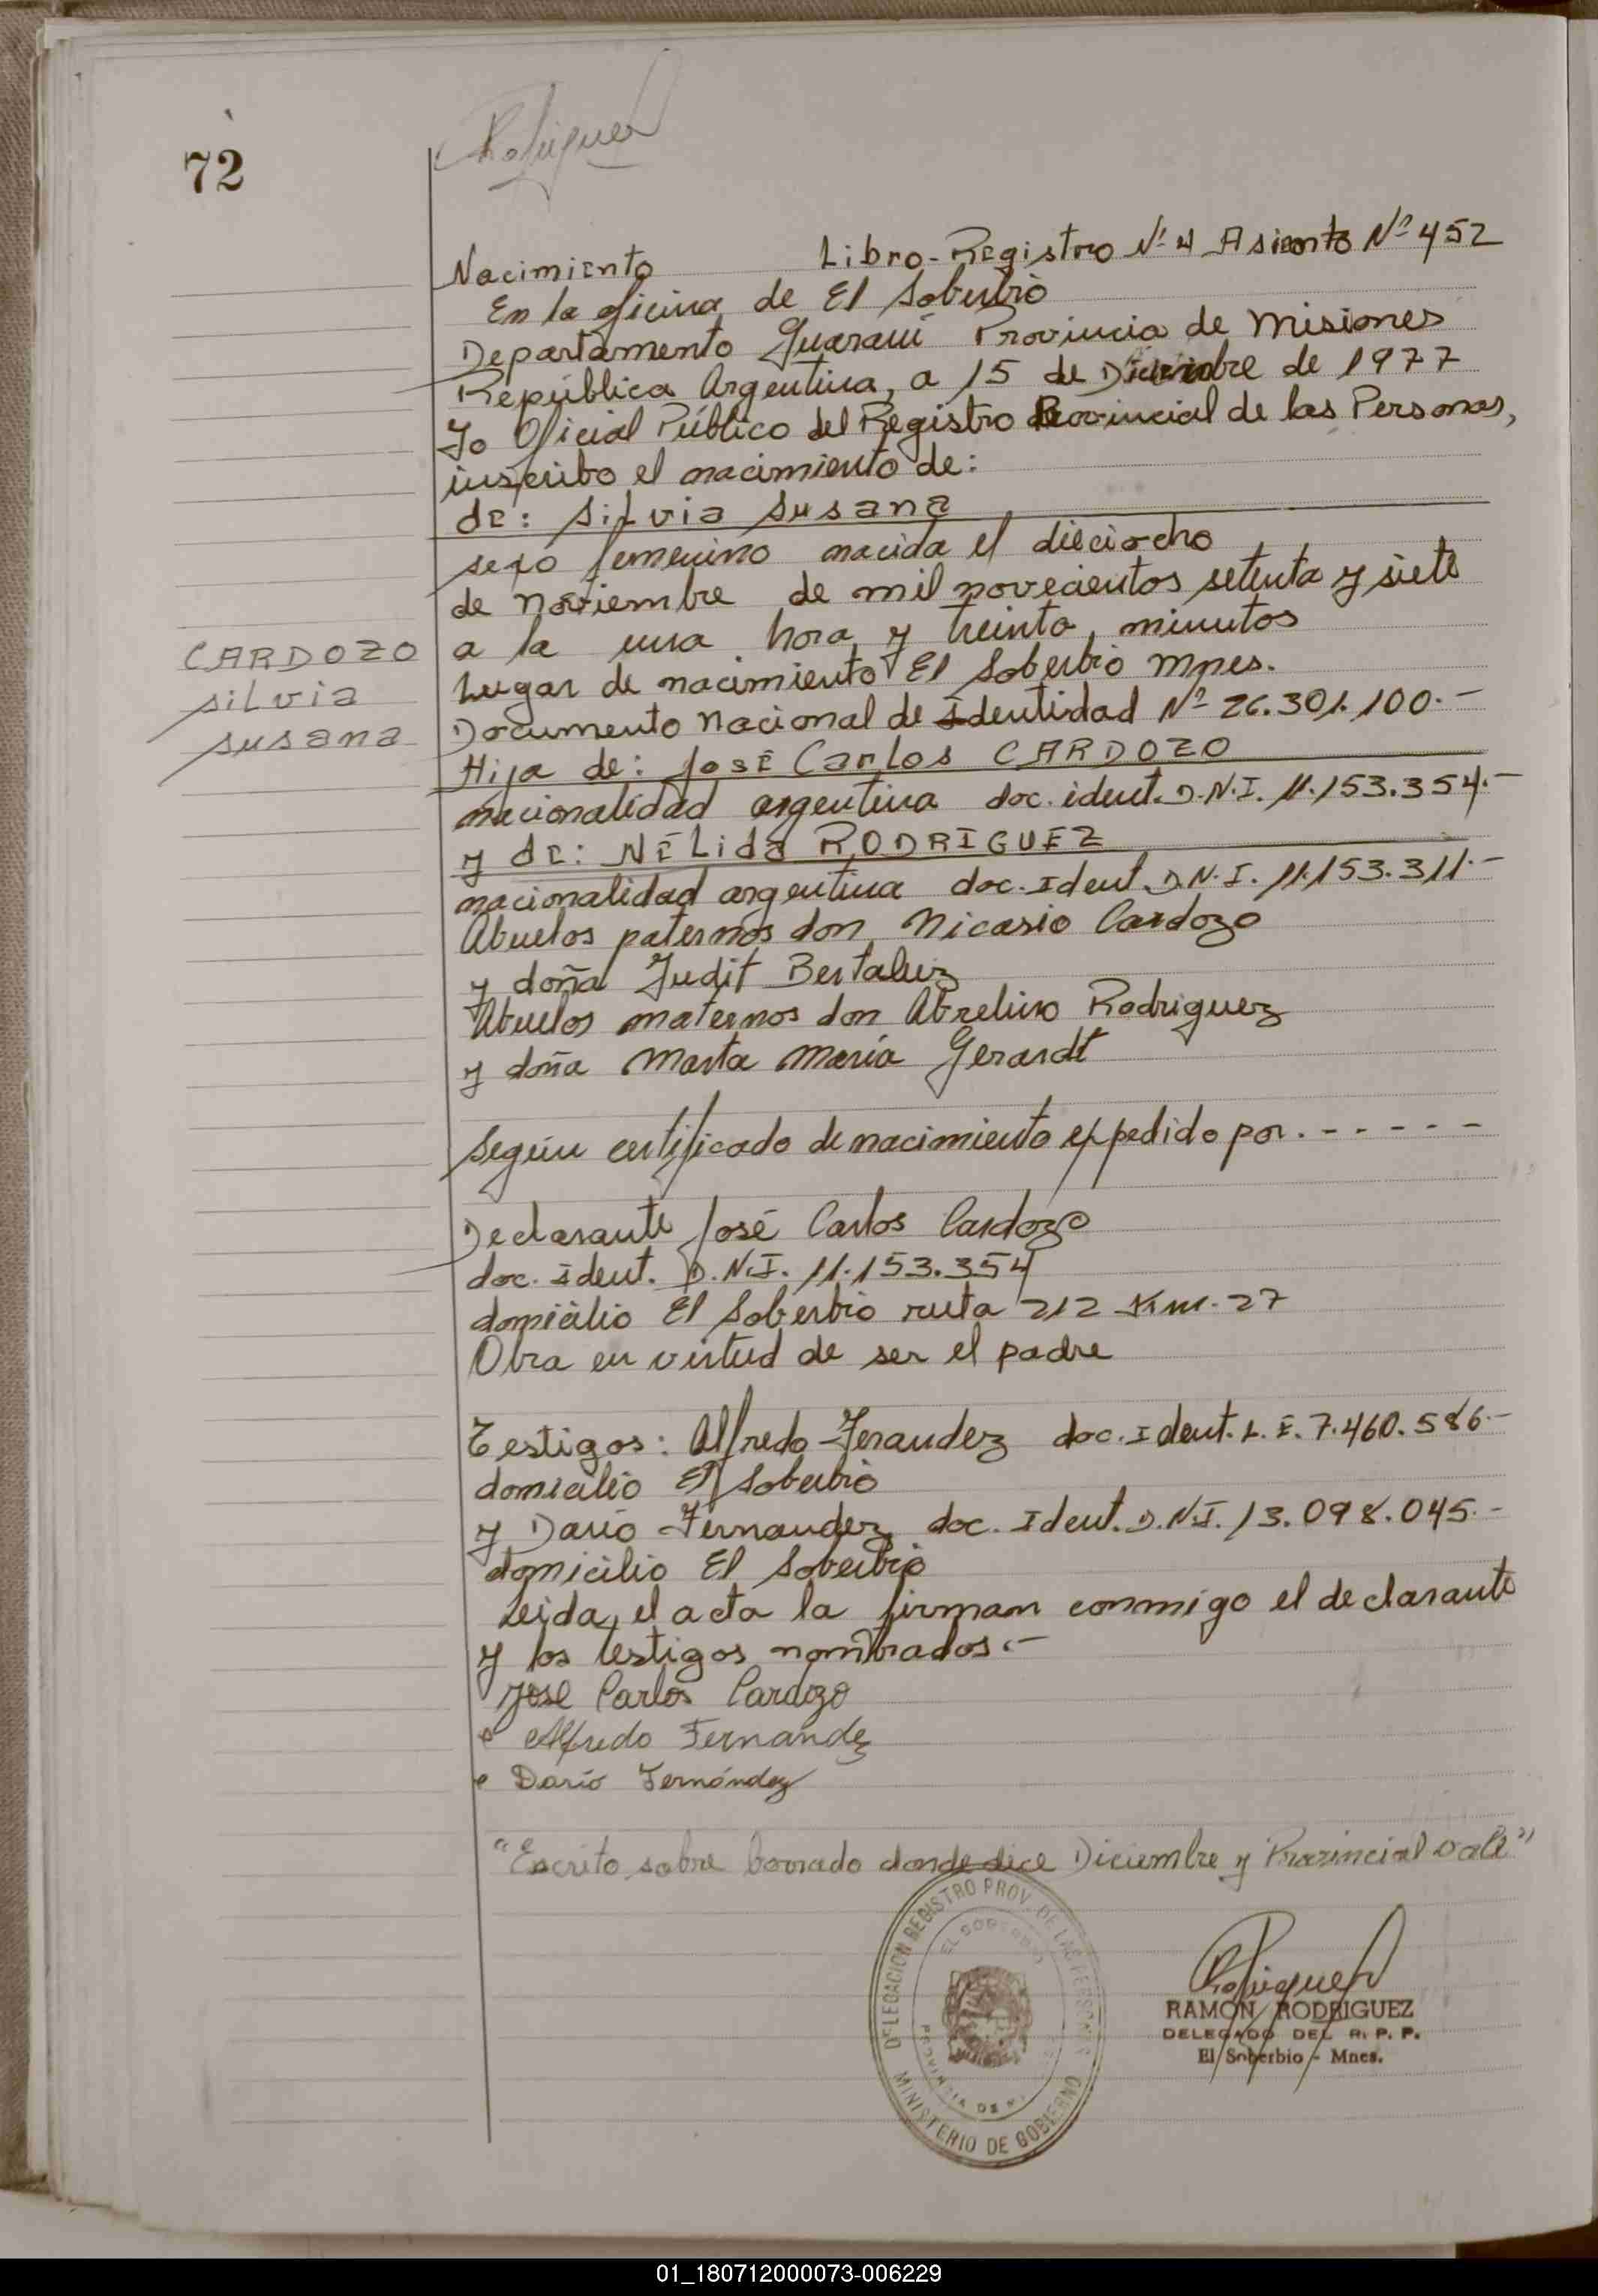 72
Rodriguez
Libro-Registro Nº 4 Asiento Nº 452
Nacimiento
En la oficina de El Soberbio
Departamento Guaraní Provincia de Misiones
República Argentina, a 15 de Diciembre de 1977
Yo Oficial Público del Registro Provincial de las Personas,
inscribo el nacimiento de:
de: Silvia Susana
sexo femenino nacida el dieciocho
de Noviembre de mil novecientos setenta y siete
a la una hora y treinta minutos
CARDOZO
Silvia
Susana
Lugar de nacimiento El Soberbio Mnes.
Documento Nacional de Identidad Nº 26.301.100.-
Hija de: José Carlos CARDOZO
nacionalidad argentina doc. ident. D.N.I. 11.153.354.-
y de: NÉLida RODRIGUEZ
nacionalidad argentina doc. Ident. D.N.I. 11.153.311.-
Abuelos paternos don Nicasio Cardozo
y doña Judit Bertaluz
Abuelos maternos don Abrelino Rodriguez
y doña Marta María Gerardt
Según certificado de nacimiento expedido por.-----
Declarante José Carlos Cardozo
doc. ident. D.N.I. 11.153.354
domicilio El Soberbio ruta 212 Km. 27
Obra en virtud de ser el padre
Testigos: Alfredo Ferandez doc. Ident. L.E. 7.460.586.-
domicilio El Soberbio
y Dario Fernandez doc. Ident. D.N.I. 13.098.045.-
domicilio El Soberbio
Leida, el acta la firman conmigo el declarante
y los testigos nombrados.-
Jose Carlos Cardozo
Alfredo Fernandez
Darío Fernández
"Escrito sobre borrado donde dice Diciembre y Provincial vale"
DELEGACION REGISTRO PROV. DE LAS PERSONAS
EL SOBERBIO
PROVINCIA DE
MINISTERIO DE GOBIERNO
Rodriguez
RAMON RODRIGUEZ
DELEGADO DEL R. P. P.
El Soberbio - Mnes.
01_180712000073-006229